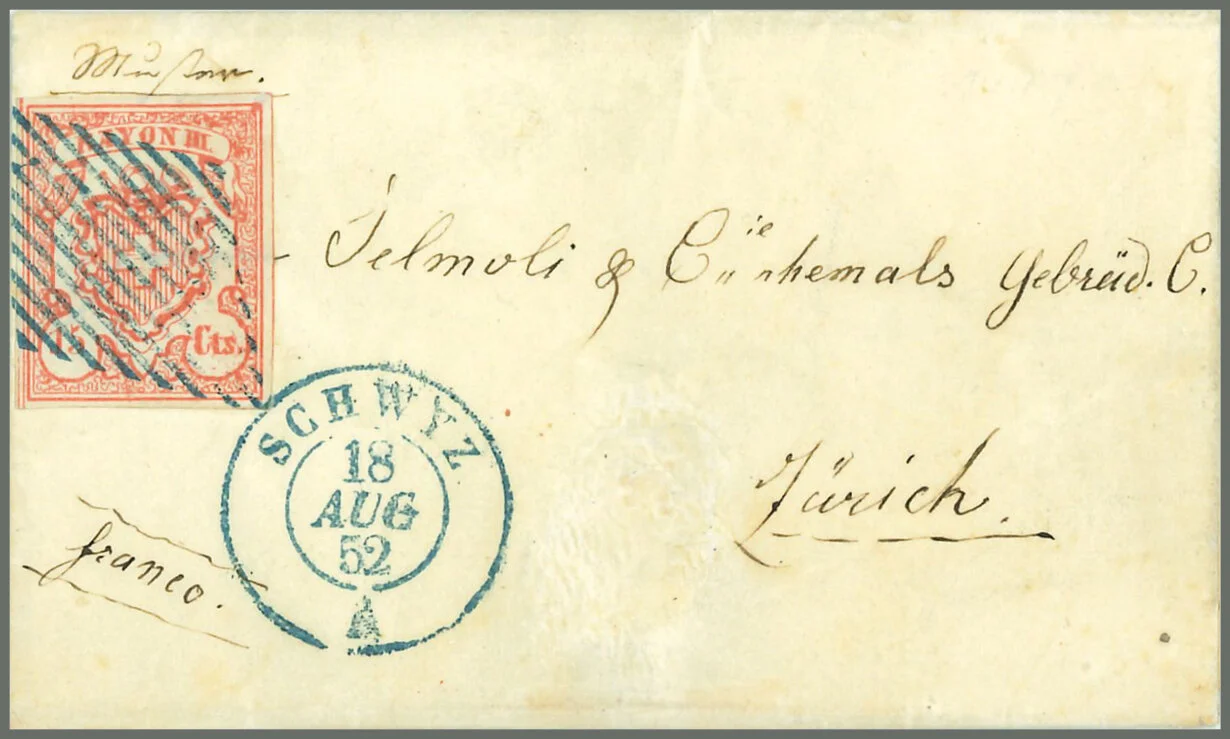 Muster.
RAYON III.
15 Cts.
Jelmoli & Cie
Gebrüd. C.
SCHWYZ
18
AUG
52
Zürich.
franco.